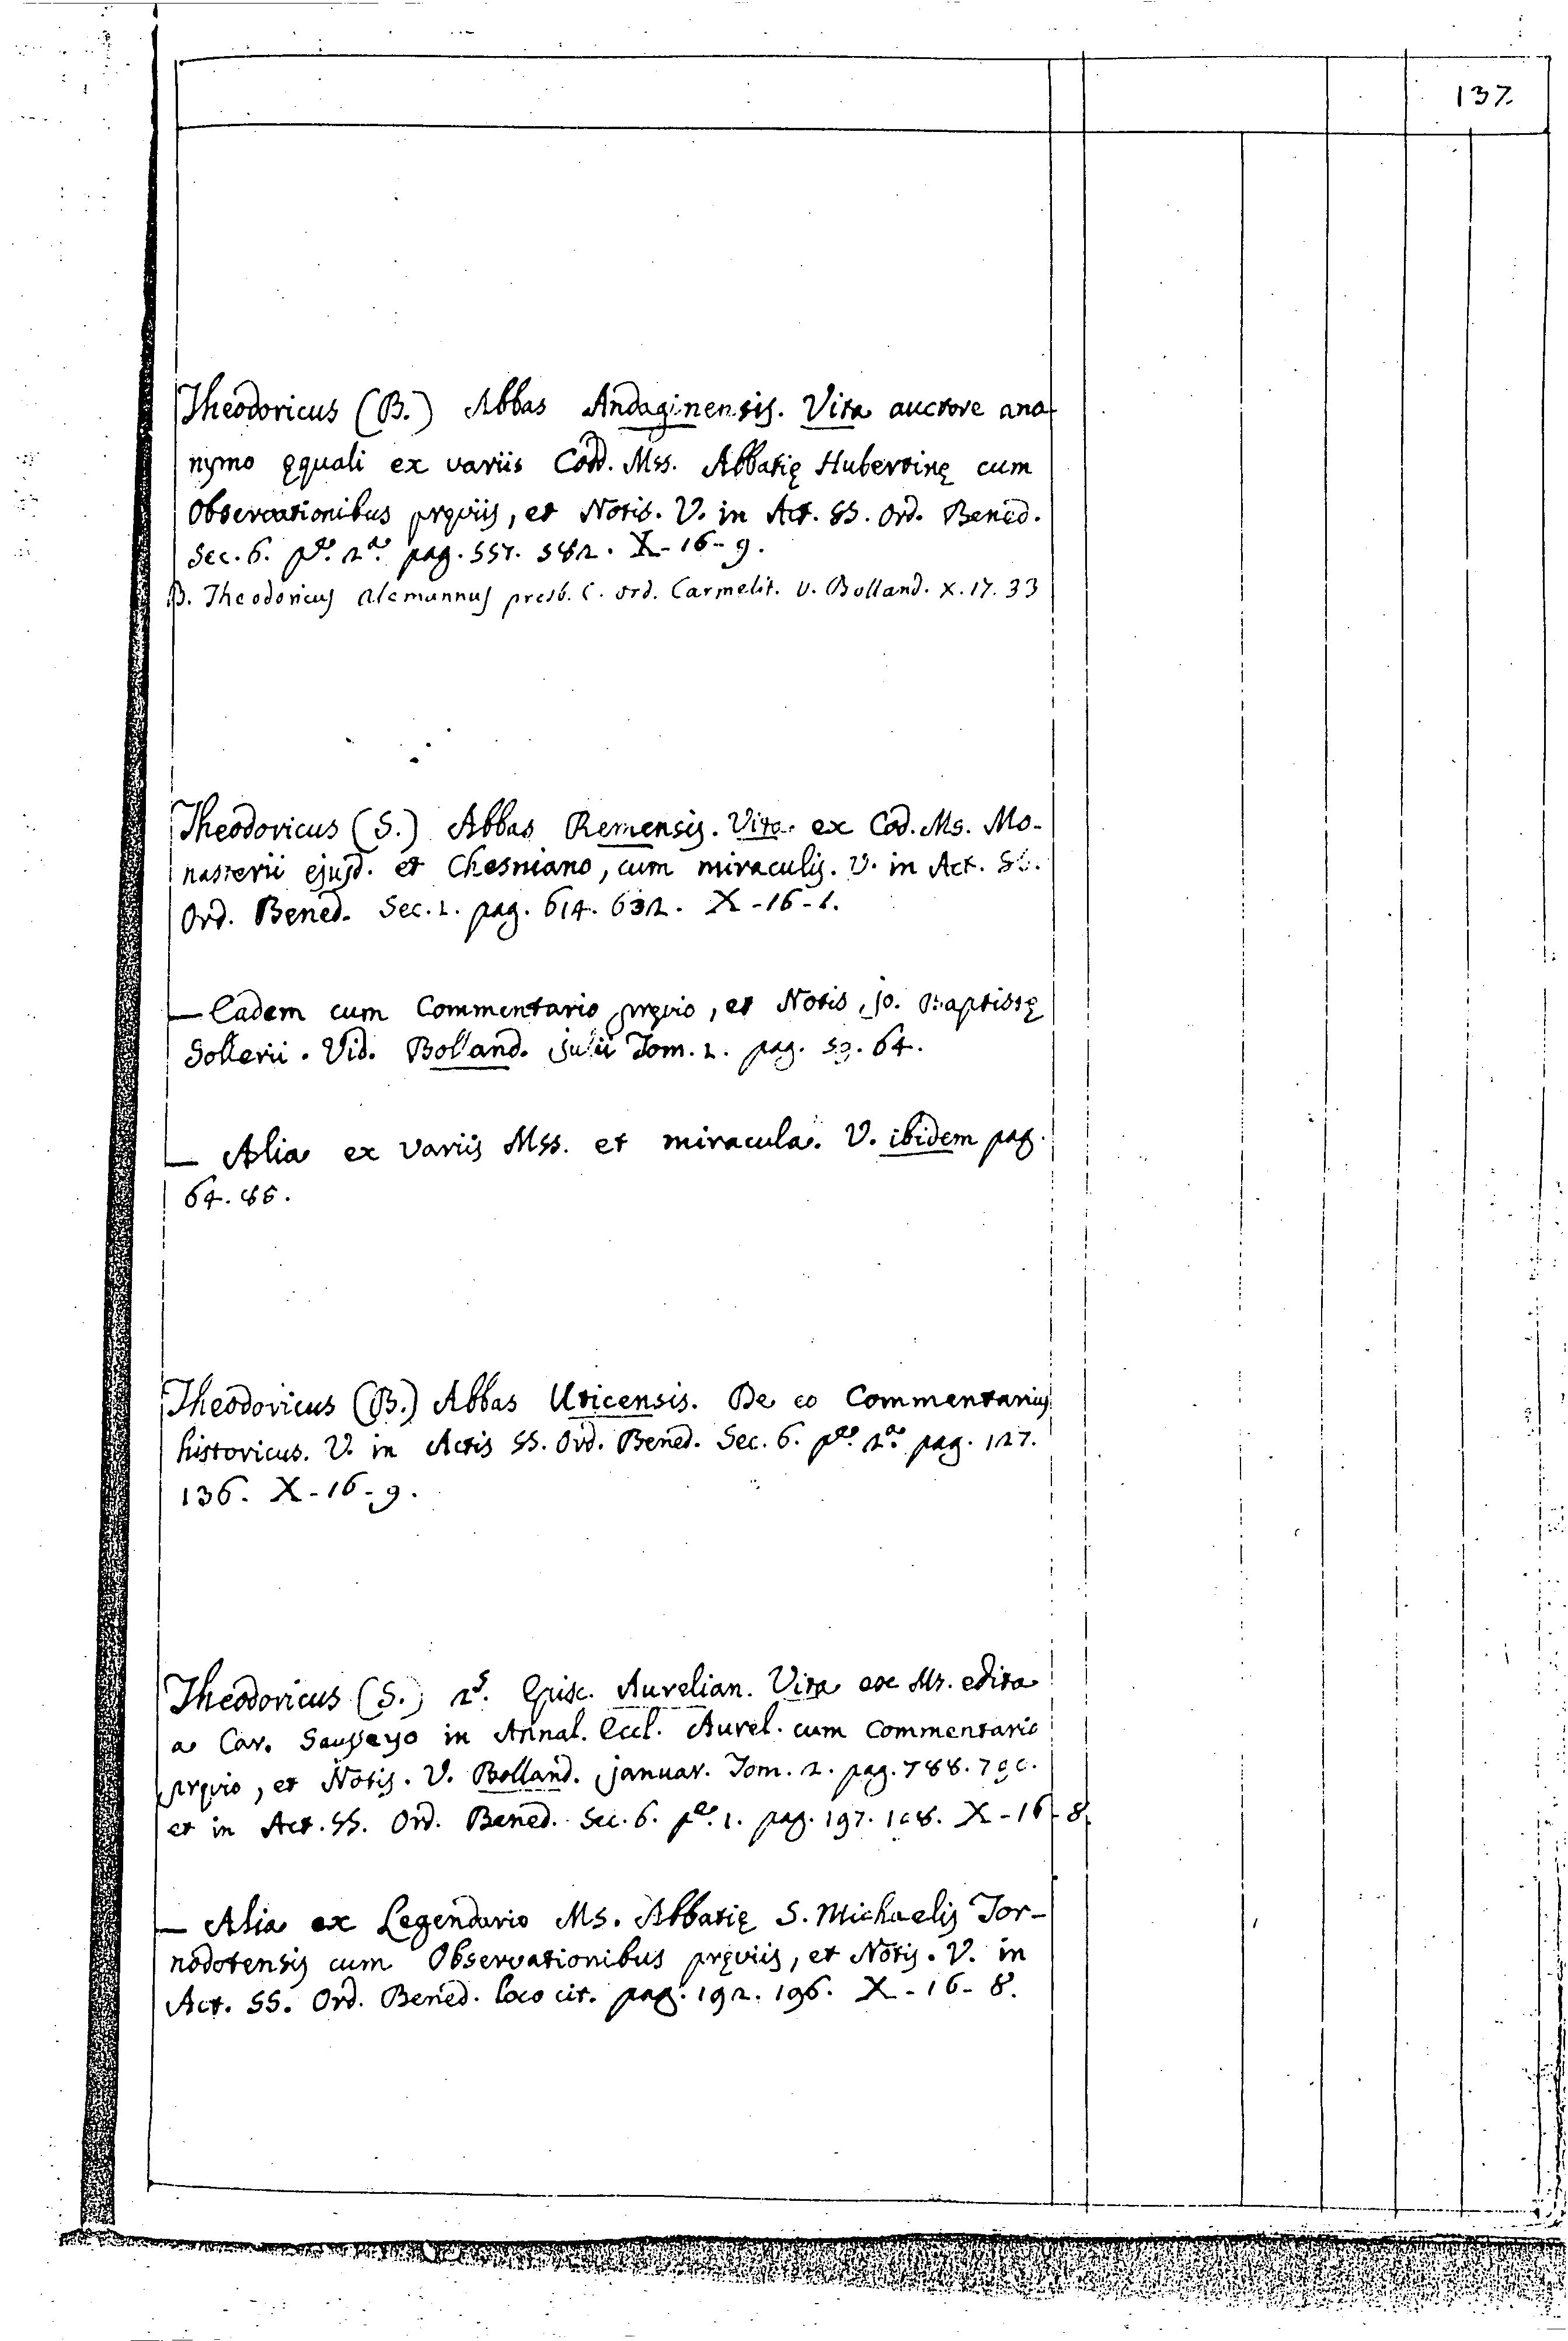 137.
Theodoricus (B.) Abbas Andaginensis. Vita auctore ano-
nymo ęquali ex variis Codd. Mss. Abbatię Hubertinę cum
Observationibus pręviis, et Notis. V. in Act. SS. Ord. Bened.
Sec. 6. pe. 2a. pag. 557. 582. X-16-9.
B. Theodoricus Alemannus presb. C. ord. Carmelit. v. Bolland. X.17.33
Theodoricus (S.) Abbas Remensis. Vita ex Cod. Ms. Mo-
nasterii ejusd. et Chesniano, cum miraculis. V. in Act. SS.
Ord. Bened. Sec. 1. pag. 614. 632. X-16-1.
— Eadem cum Commentario pręvio, et Notis, jo. Baptistę
Sollerii. Vid. Bolland. julii Tom. 1. pag. 59. 64.
— Alia ex variis Mss. et miracula. V. ibidem pag.
64. 85.
Theodoricus (B.) Abbas Uticensis. De eo Commentarius
historicus. V. in Actis SS. Ord. Bened. Sec. 6. pe. 2a. pag. 127.
136. X-16-9.
Theodoricus (S.) 2s. Episc. Aurelian. Vita ex Ms. edita
a Car. Sausseyo in Annal. Eccl. Aurel. cum Commentario
pręvio, et Notis. V. Bolland. januar. Tom. 2. pag. 788. 790.
et in Act. SS. Ord. Bened. Sec. 6. pe. 1. pag. 197. 198. X-16-8.
— Alia ex Legendario Ms. Abbatię S. Michaelis Tor-
nodotensis cum Observationibus pręviis, et Notis. V. in
Act. SS. Ord. Bened. loco cit. pag. 192. 196. X-16-8.